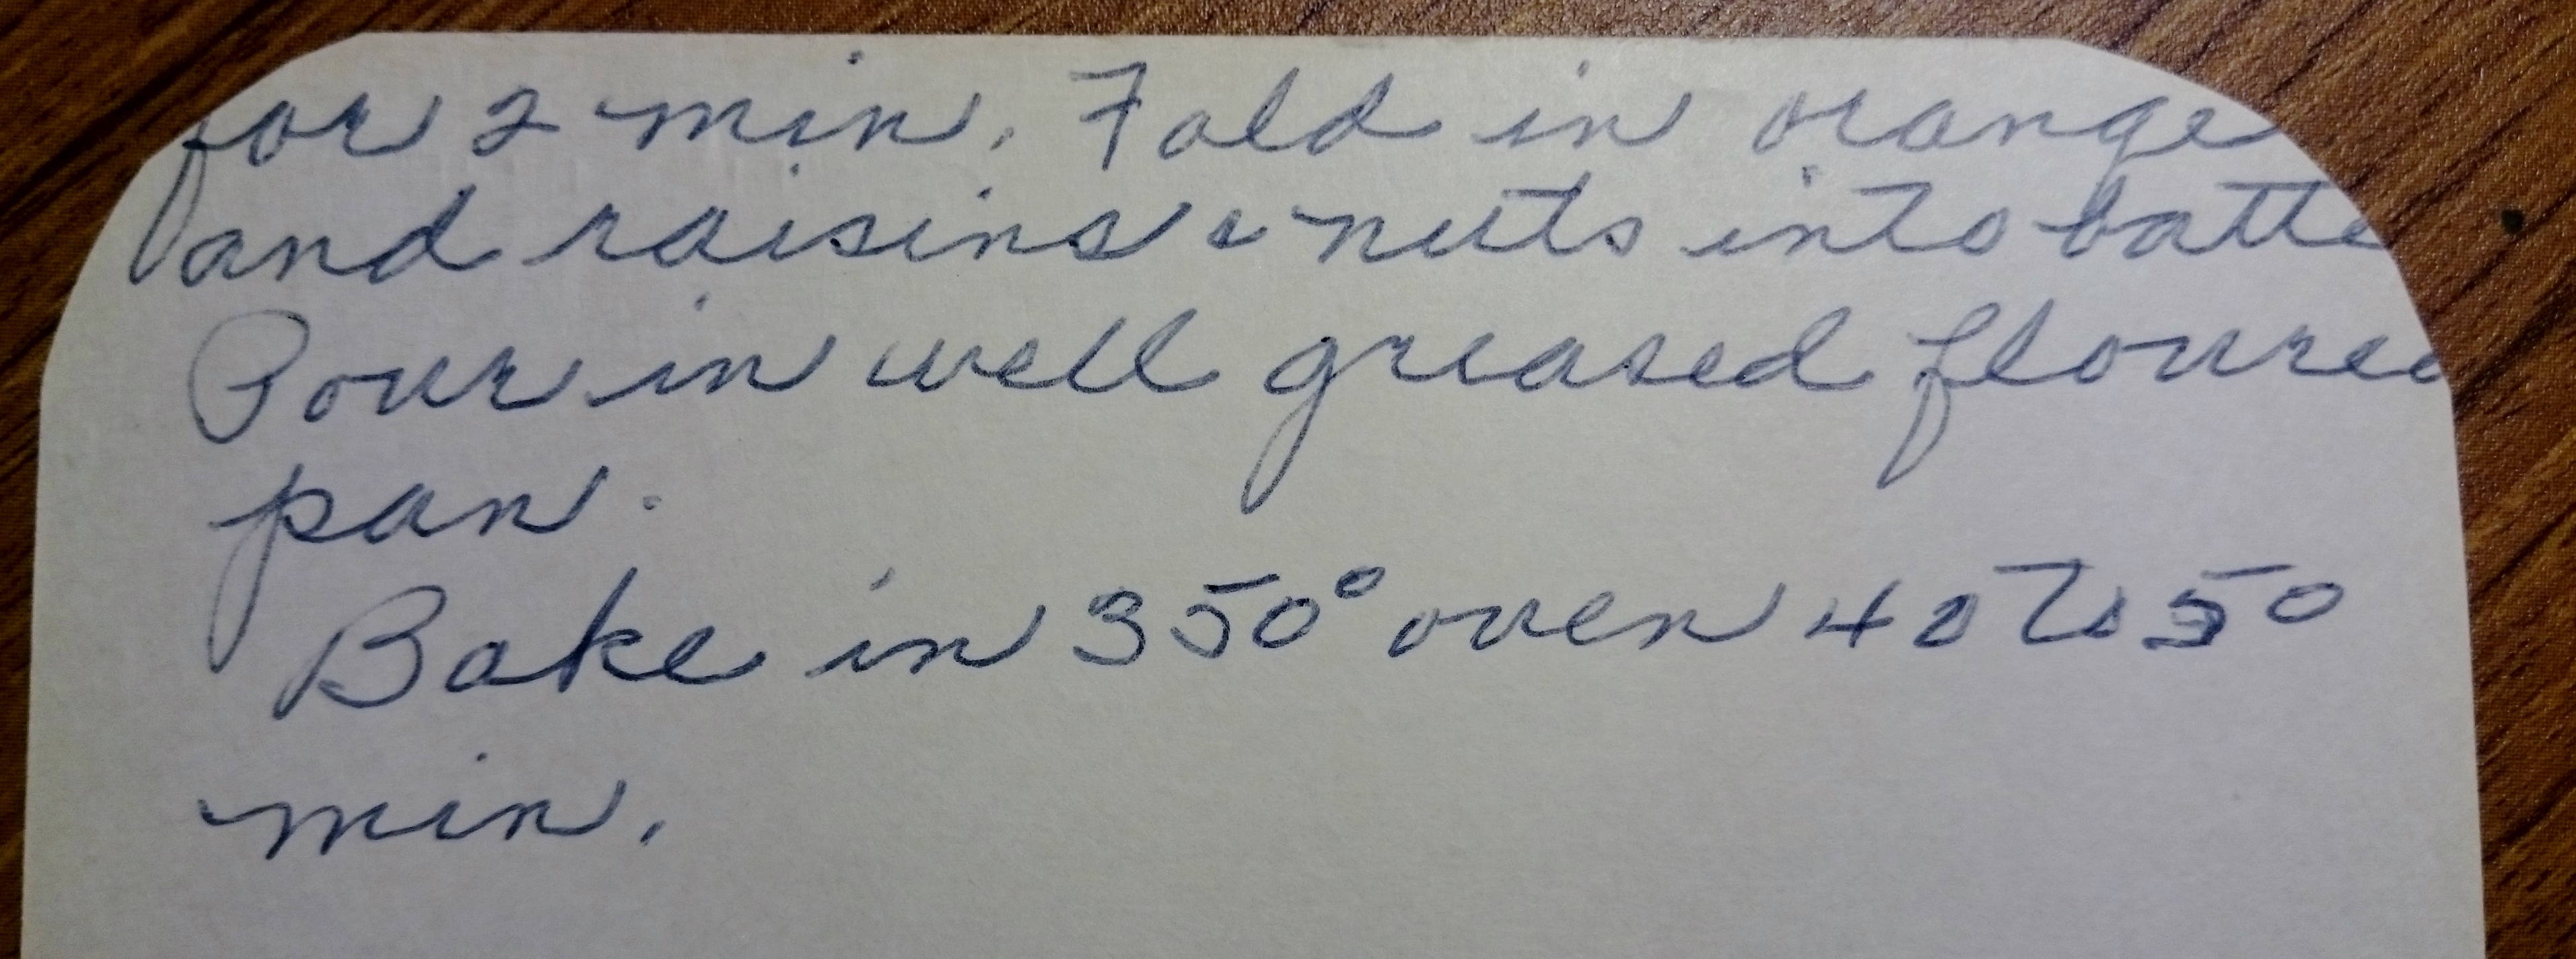 for 2 min. Fold in orange
and raisins & nuts into batte
Pour in well greased floured
pan.
Bake in 350° oven 40 to 50
min.